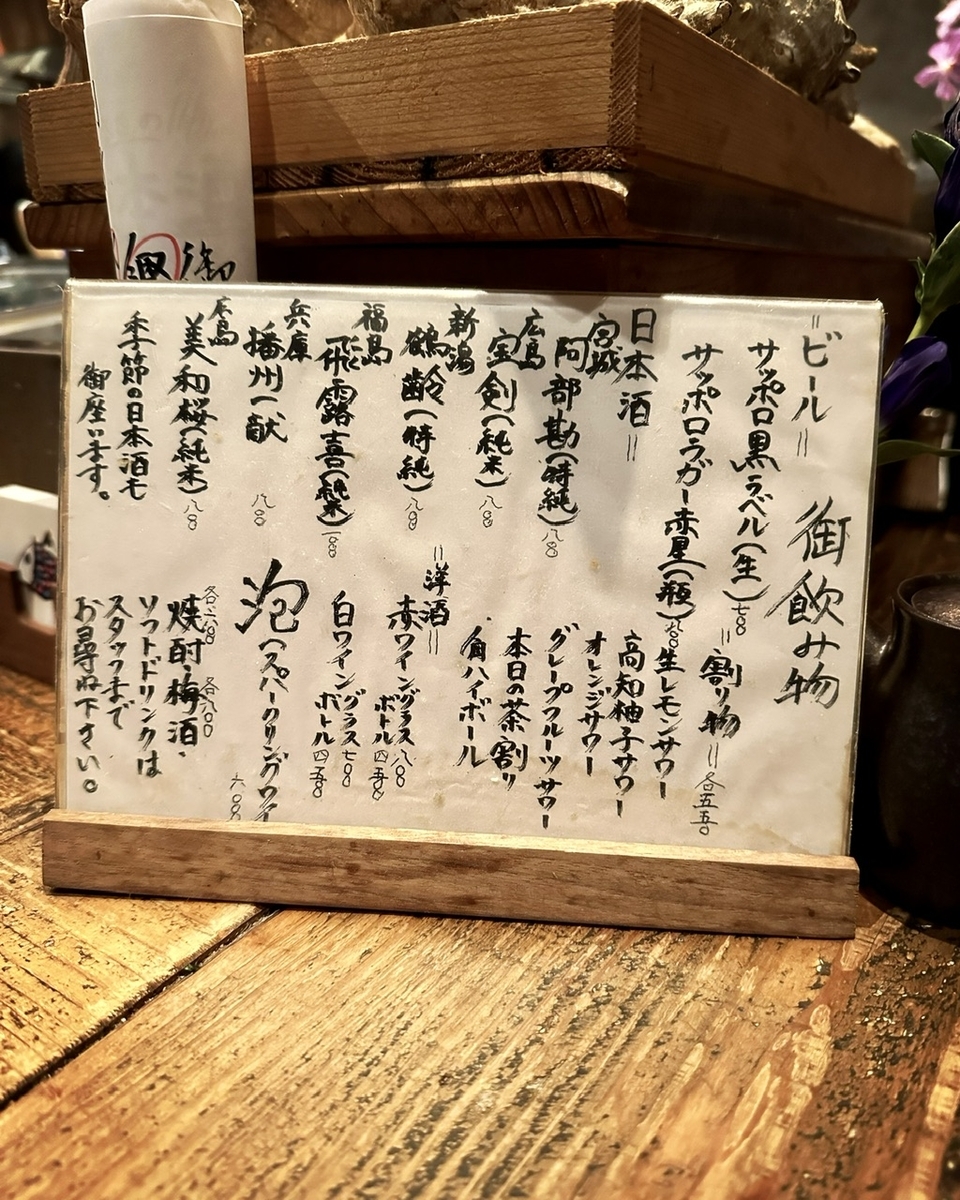 御飲み物
=ビール=
サッポロ黒ラベル(生) 七〇〇
サッポロラガー赤星(瓶) 八〇〇
=日本酒=
宮城
阿部勘(特純) 八〇〇
広島
宝剣(純米) 八〇〇
新潟
鶴齢(特純) 八〇〇
福島
飛露喜(純米)
兵庫
播州一献 八〇〇
広島
美和桜(純米) 八〇〇
季節の日本酒も
御座います。
=割り物= 各五五〇
生レモンサワー
高知柚子サワー
オレンジサワー
グレープフルーツサワー
本日の茶割り
角ハイボール
=洋酒=
赤ワイン グラス 八〇〇
ボトル 四五〇〇
白ワイン グラス 七〇〇
ボトル 四五〇〇
泡(スパークリングワイ
六〇〇
焼酎・梅酒・
ソフトドリンクは
スタッフまで
お尋ね下さい。
御